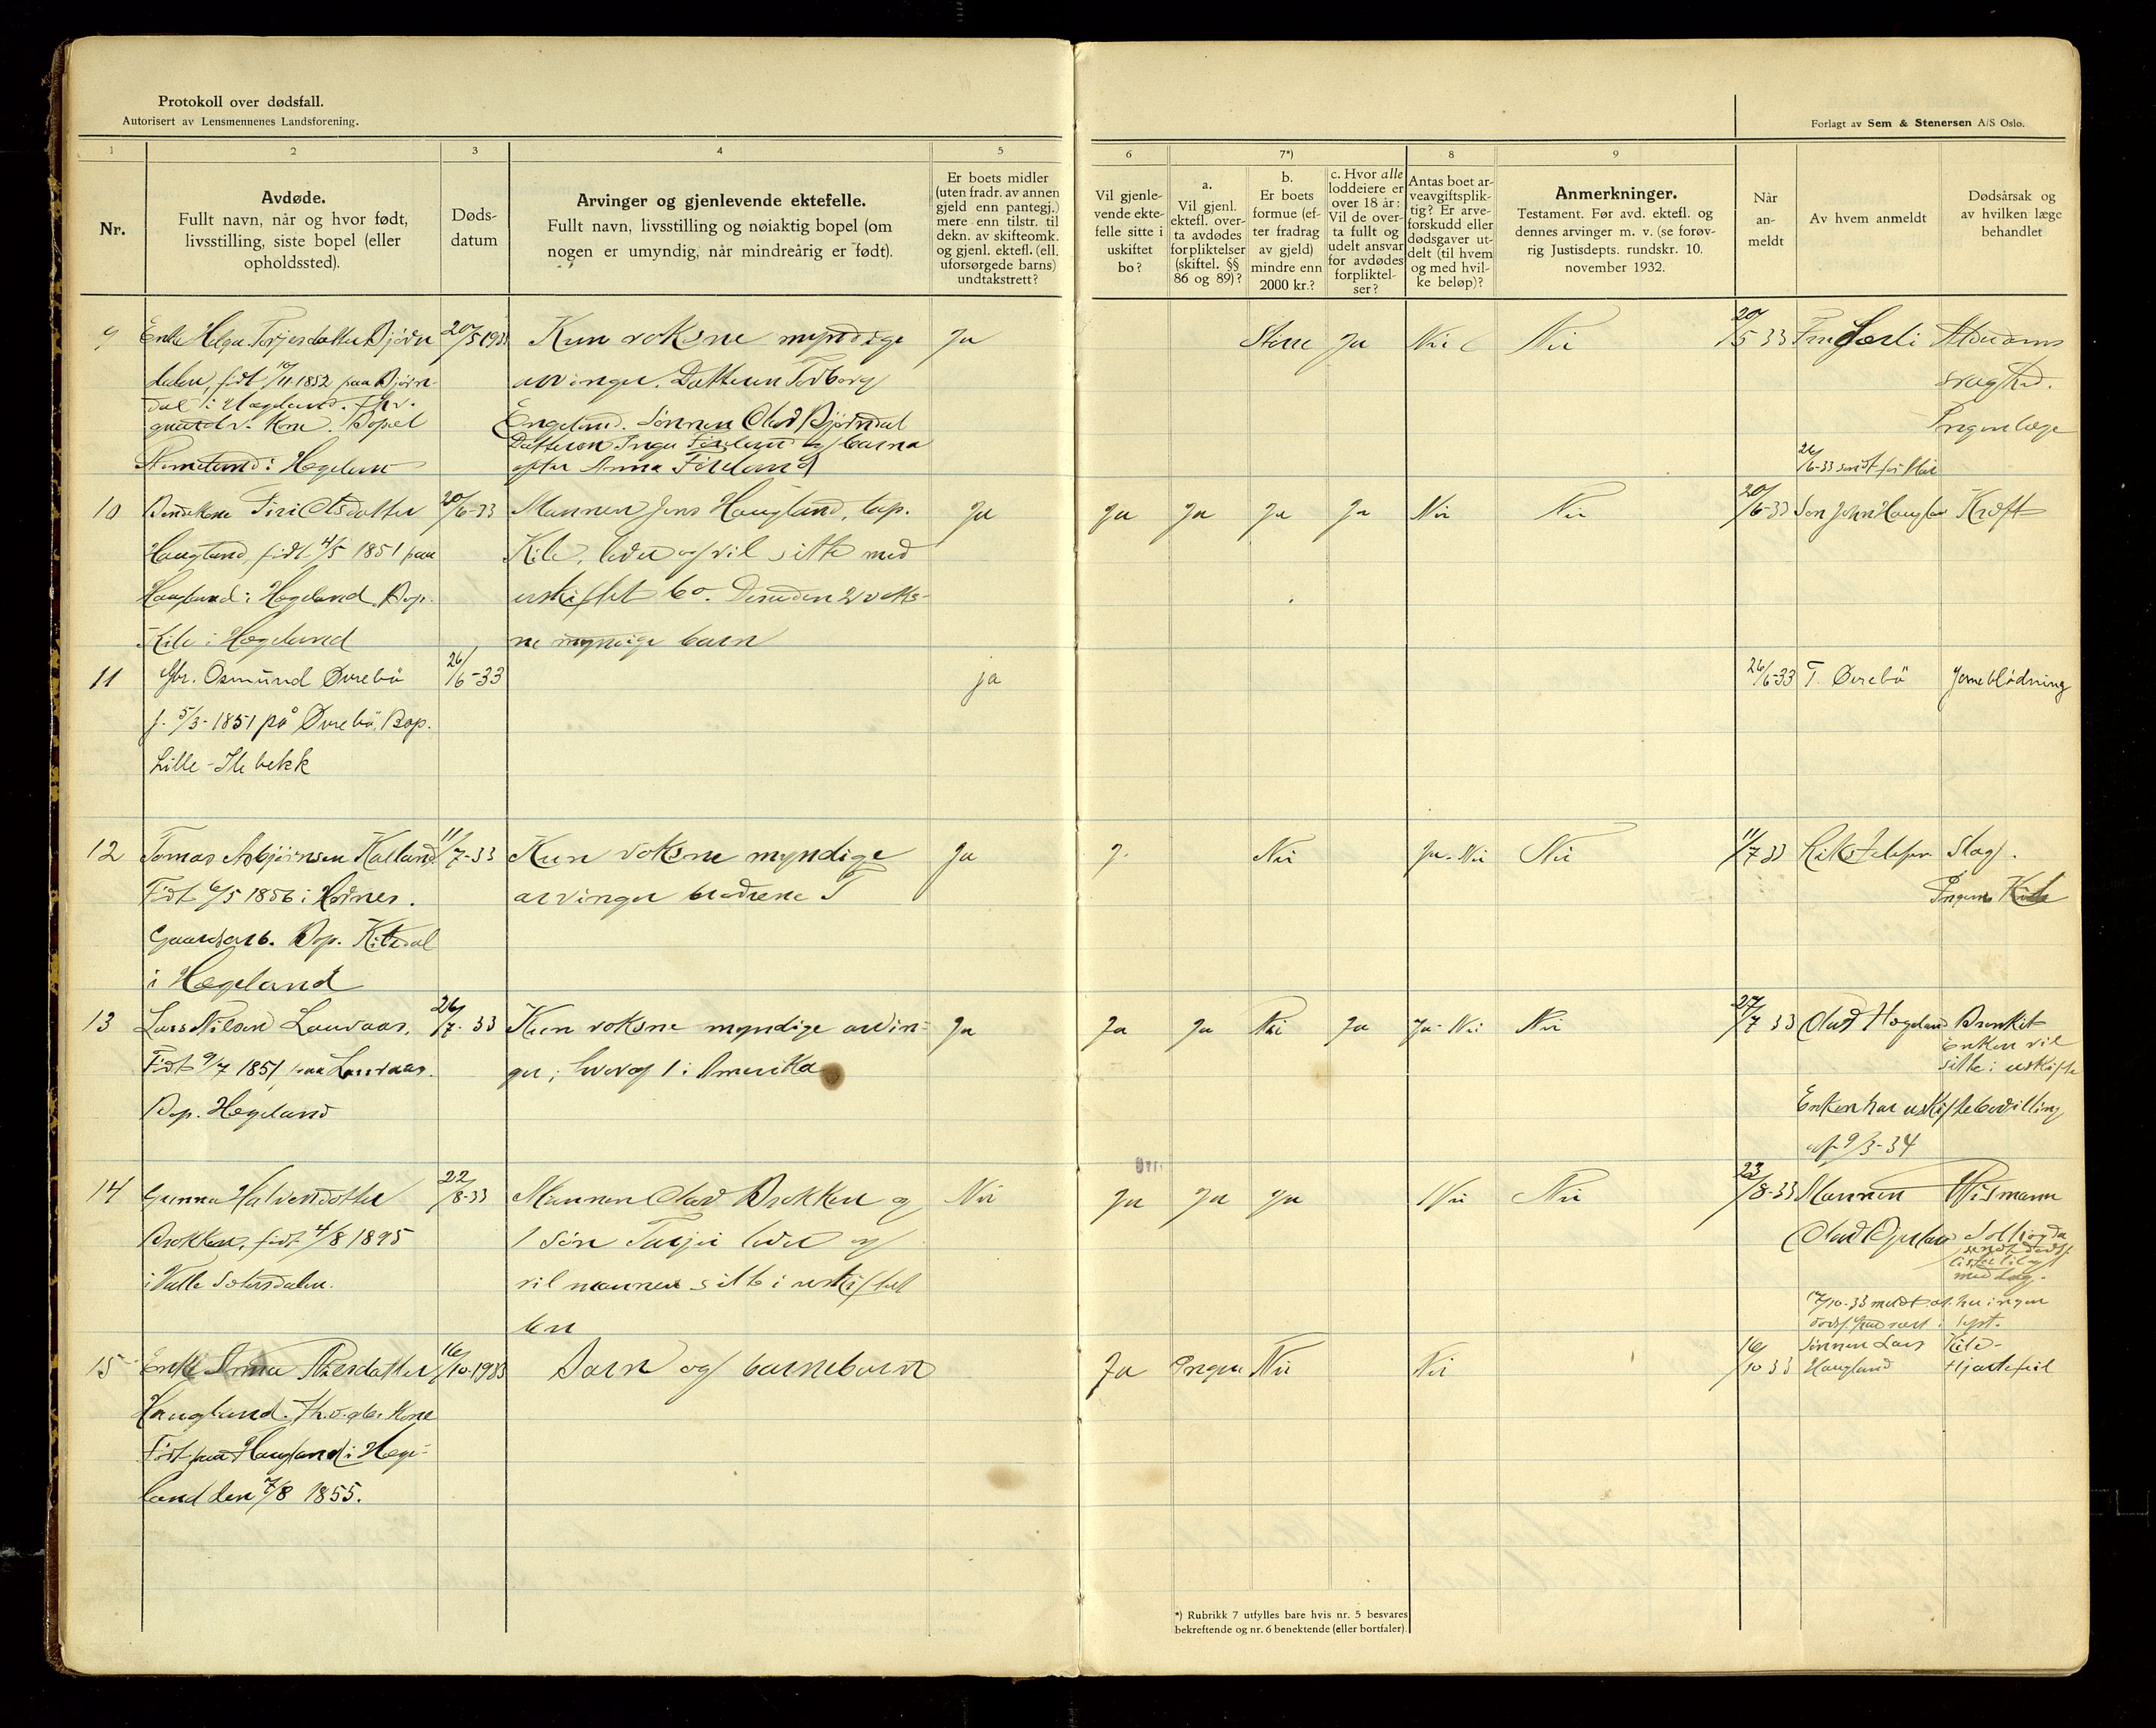 Protokoll over dødsfall.
Autorisert av Lensmennenes Landsforening.
Forlagt av Sem & Stenersen A/S Oslo.
1
2
3
4
5
6
7*)
8
9
Nr.
Avdøde.
Fullt navn, når og hvor født,
livsstilling, siste bopel (eller
opholdssted).
Døds-
datum
Arvinger og gjenlevende ektefelle.
Fullt navn, livsstilling og nøiaktig bopel (om
nogen er umyndig, når mindreårig er født).
Er boets midler
(uten fradr. av annen
gjeld enn pantegj.)
mere enn tilstr. til
dekn. av skifteomk.
og gjenl. ektefl. (ell.
uforsørgede barns)
undtakstrett?
Vil gjenle-
vende ekte-
felle sitte i
uskiftet
bo?
a.
Vil gjenl.
ektefl. over-
ta avdødes
forpliktelser
(skiftel. §§
86 og 89)?
b.
Er boets
formue (ef-
ter fradrag
av gjeld)
mindre enn
2000 kr.?
c. Hvor alle
loddeiere er
over 18 år:
Vil de over-
ta fullt og
udelt ansvar
for avdødes
forpliktel-
ser?
Antas boet ar-
veavgiftsplik-
tig? Er arve-
forskudd eller
dødsgaver ut-
delt (til hvem
og med hvil-
ke beløp)?
Anmerkninger.
Testament. Før avd. ektefl. og
dennes arvinger m. v. (se forøv-
rig Justisdepts. rundskr. 10.
november 1932.
Når
an-
meldt
Av hvem anmeldt
Dødsårsak og
av hvilken læge
behandlet
9
Enke Helga Torjesdatter Bjørn
dalen, født 1852 paa Bjørn-
dal i Hægeland.
Kone. Bopel
i Hægeland
20/5 1933
Kun voksne myndige
arvinger. Datteren Torborg
Engeland. Sønnen Olav Bjørndal
Datteren Inga og barna
efter Anna
Ja
Større
Ja
Nei
Nei
20/5 33
Alderdoms
svaghed.
Ingen læge
10
Siri Olsdatter
Haugland, født 4/5 1851 paa
Haugland i Hægeland. Bop.
Kile i Hægeland
20/6-33
Mannen Jens Haugland, bop.
Kile, lever og vil sitte med
uskiftet bo. Desuden 2 voks-
ne myndige barn
Ja
Ja
Ja
Ja
Ja
Nei
Nei
20/6-33
Søn John Haugland
Kreft
11
Gbr. Osmund Øvrebö
f. 5/3-1851 på Øvrebö. Bop.
Lille-Ilebekk
26/6-33
ja
26/6-33
T. Øvrebö
Jerneblödning
12
Tomas Asbjørnsen Kalland
Født 6/5 1856 i
Gaardarb. Bop.
i Hægeland
11/7-33
Kun voksne myndige
arvinger brødrene T
Ja
Nei
Ja. Nei
Nei
11/7 33
Slag.
Ingen
13
Lars Nilsen Lauvaas.
Født 9/7 1851 paa Lauvaas.
Bop. Hægeland
26/7-33
Kun voksne myndige arvin-
ger, hvorav 1 i Amerika
Ja
Ja
Ja
Nei
Ja
Ja-Nei
Nei
27/7 33
Olav Hægeland
Bronkit
Enken vil
sitte i uskifte
Enken har uskiftebevilling
af 9/3-34
14
Gunne Halvorsdotter
Brokken, født 4/8 1895
i Valle Setersdalen.
22/8-33
Mannen Olav Brokken og
1 søn Tarjei lever og
vil mannen sitte i uskiftet
bu
Nei
Ja
Ja
Ja
Nei
Nei
23/8-33
Mannen
Wismann
15
Enke Anna Nilsdatter
Haugland. Fhv. gbr. Kone
Født paa Haugland i Hæge-
land den 7/8 1855.
16/10 1933
Barn og barnebarn
Ja
Ingen
Nei
Nei
16/10 33
Sønnen Lars
Haugland
Kile-
Hjartefeil
*) Rubrikk 7 utfylles bare hvis nr. 5 besvares
bekreftende og nr. 6 benektende (eller bortfaler).